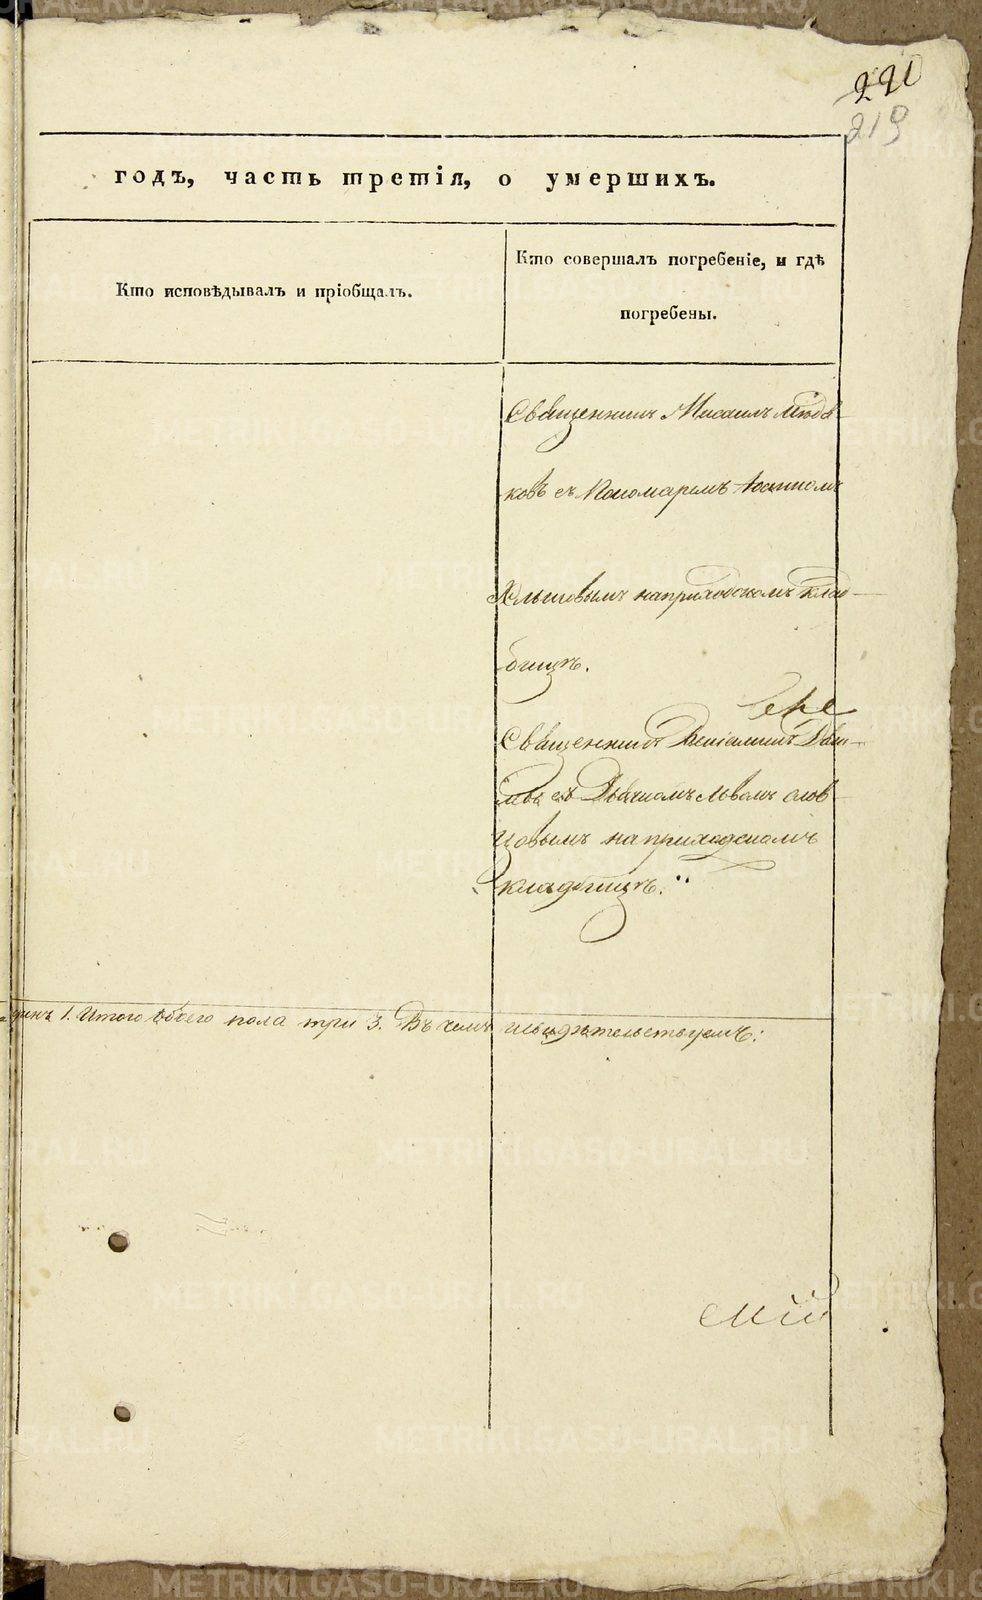 221
219
годъ, часть третія, о умершихъ.
Кто исповѣдывалъ и пріобщалъ.
Кто совершалъ погребеніе, и гдѣ
погребены.
Священникъ Михаилъ
ковъ съ Пономаремъ Іоанномъ
на приходскомъ клад-
бищѣ.
Священникъ Веніаминъ
съ Дьячкомъ Львомъ Слов-
цовымъ на приходскомъ
кладбищѣ.
1. Итого обоего пола три 3. Въ чемъ и свидѣтельствуемъ:
METRIKI.GASO-URAL.RU